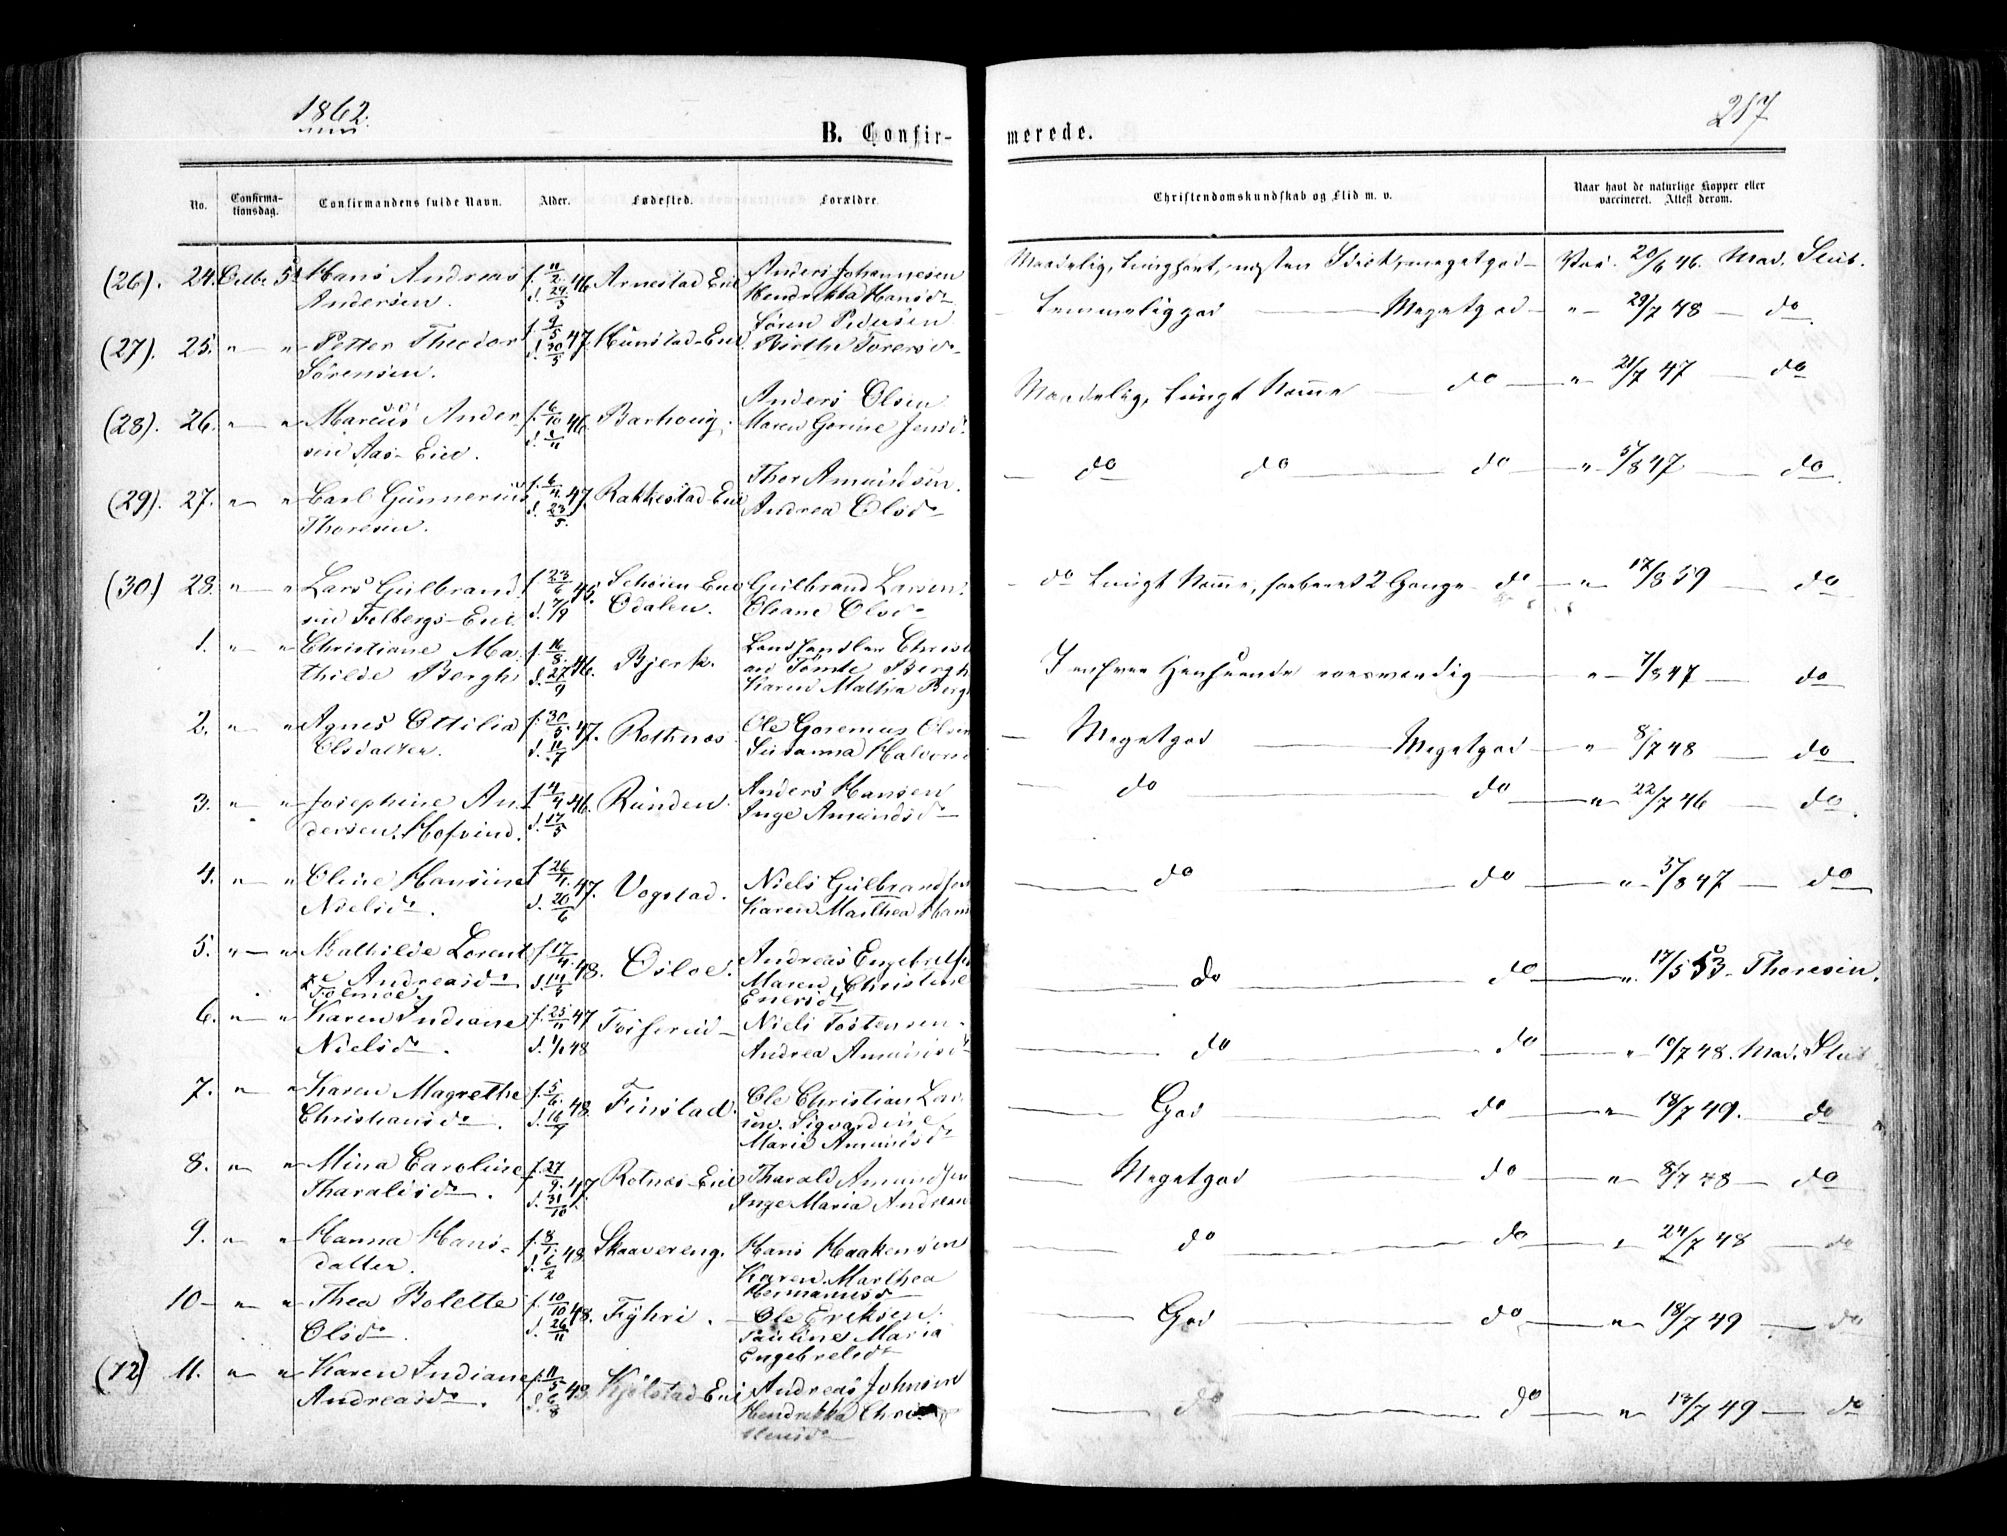 1862.
217
B. Confirmerede.
No.
Confirmationsdag.
Confirmandens fulde Navn.
Alder.
Fødested.
Forældre.
Christendomskundskab og Flid m. v.
Naar havt de naturlige Kopper eller vaccineret. Attest derom.
(26). 24. Octbr 5t Hans Andreas Andersen. f. 11/2 46 d. 29/3 Arnestad Eie Anders Johannesen Hendrikka Hansd. Vac. 20/6 46. Mad. Stub.
(27). 25. " — " Petter Theodor Sørensen. f. 9/5 47. d. 30/5 Hunstad-Eie Sören Pedersen Birthe Torersd. Temmelig god — Meget god — " — 29/7 48 — do.
(28). 26. " — " Marcus Andersen Aas-Eie. f. 6/10 46. d. 1/11 Barhoug. Anders Olsen Maren Gorine Jensd. Maadelig, tungt Nemme — do — " — 21/7 47 — do
(29). 27. " — " Carl Gunnerius Thoresen. f. 6/4 47. d. 23/5. Rakkestad-Eie Thor Amundsen. Andrea Olsd. — do do — do — " — 5/8 47 — do.
(30) 28. " — " Lars Gulbrandsen Folbergs-Eie. f. 23/6 45. d. 7/9 Eie Odalen. Gulbrand Larsen. Eliane Olsd. — do tungt Nemme, 2 Gange — do — " — 17/8 59 — do
1. " — " Christiane Mathilde Bergh f. 16/8 46. d. 27/9 Bjerk. Landhandler Christian Tømte Bergh Karen Mathea Bergh I enhver Henseende roesværdig — " — 7/8 47 — do
2. " — " Agnes Ottilia Olsdatter. f. 30/5 47. d. 11/7 Rothnæs Ole Goremus Olsen Susanna Halvorsd — Meget god — Meget god — " — 8/7 48 — do
3. " — " Josephine Andersen. Hofvind. f. 4/4 46. d. 17/5 Runden. Anders Hansen Inge Amundsd. do — do — " 22/7 46 — do.
4. " — " Oline Hansine Nielsd. f. 26/4. 47. d. 20/6 Vogstad. Niels Gulbrandsen Karen Marthea Hans — do — do — " — 5/8 47 — do
5. " — " Mathilde Lorentze Andreasd. f. 17/4. 48. d. 14/5 Osloe. Andreas Engebretsen Maren Christine Enersd. do do — " 17/5 53 — Thoresen.
6. " — " Karen Indiane Nielsd. f. 25/11 47 d. 1/1 48 Niels Tostensen. Andrea Amundsd. — do — do — " 10/7 48. Mad. Stub
7. " — " Karen Magrethe Christiansd. f. 5/6. 48. d. 16/7 Finstad. Ole Christian Larsen. Sigvardine Marie Amundsd. — God — do — " — 18/7 49. — do
8. " — " Mina Caroline Tharaldsd. f. 27/9. 47. d. 31/10 Rotnæs-Eie Tharald Amundsen Inge Maria Andersd — Meget god — do — " — 8/7 48 — do
9. " — " Hanna Hansdatter. f. 8/1. 48. d. 6/2 Skaavereng. Hans Haakensen Karen Marthea Hermansd — do — do — " 24/7 48 — do
10 — " — " Thea Bolette Olsd. f. 10/10 48. d. 26/11 Fÿhri. Ole Eriksen. Pauline Maria Engebretsd. — God — do — " — 18/7 49 — do
(12) 11. " — " Karen Indiane Andreasd. f. 11/5 48. d. 6/8 Kjølstad-Eie Andreas Johnsen Hendrikka Christensd. — do — do — " — 13/7 49 — do